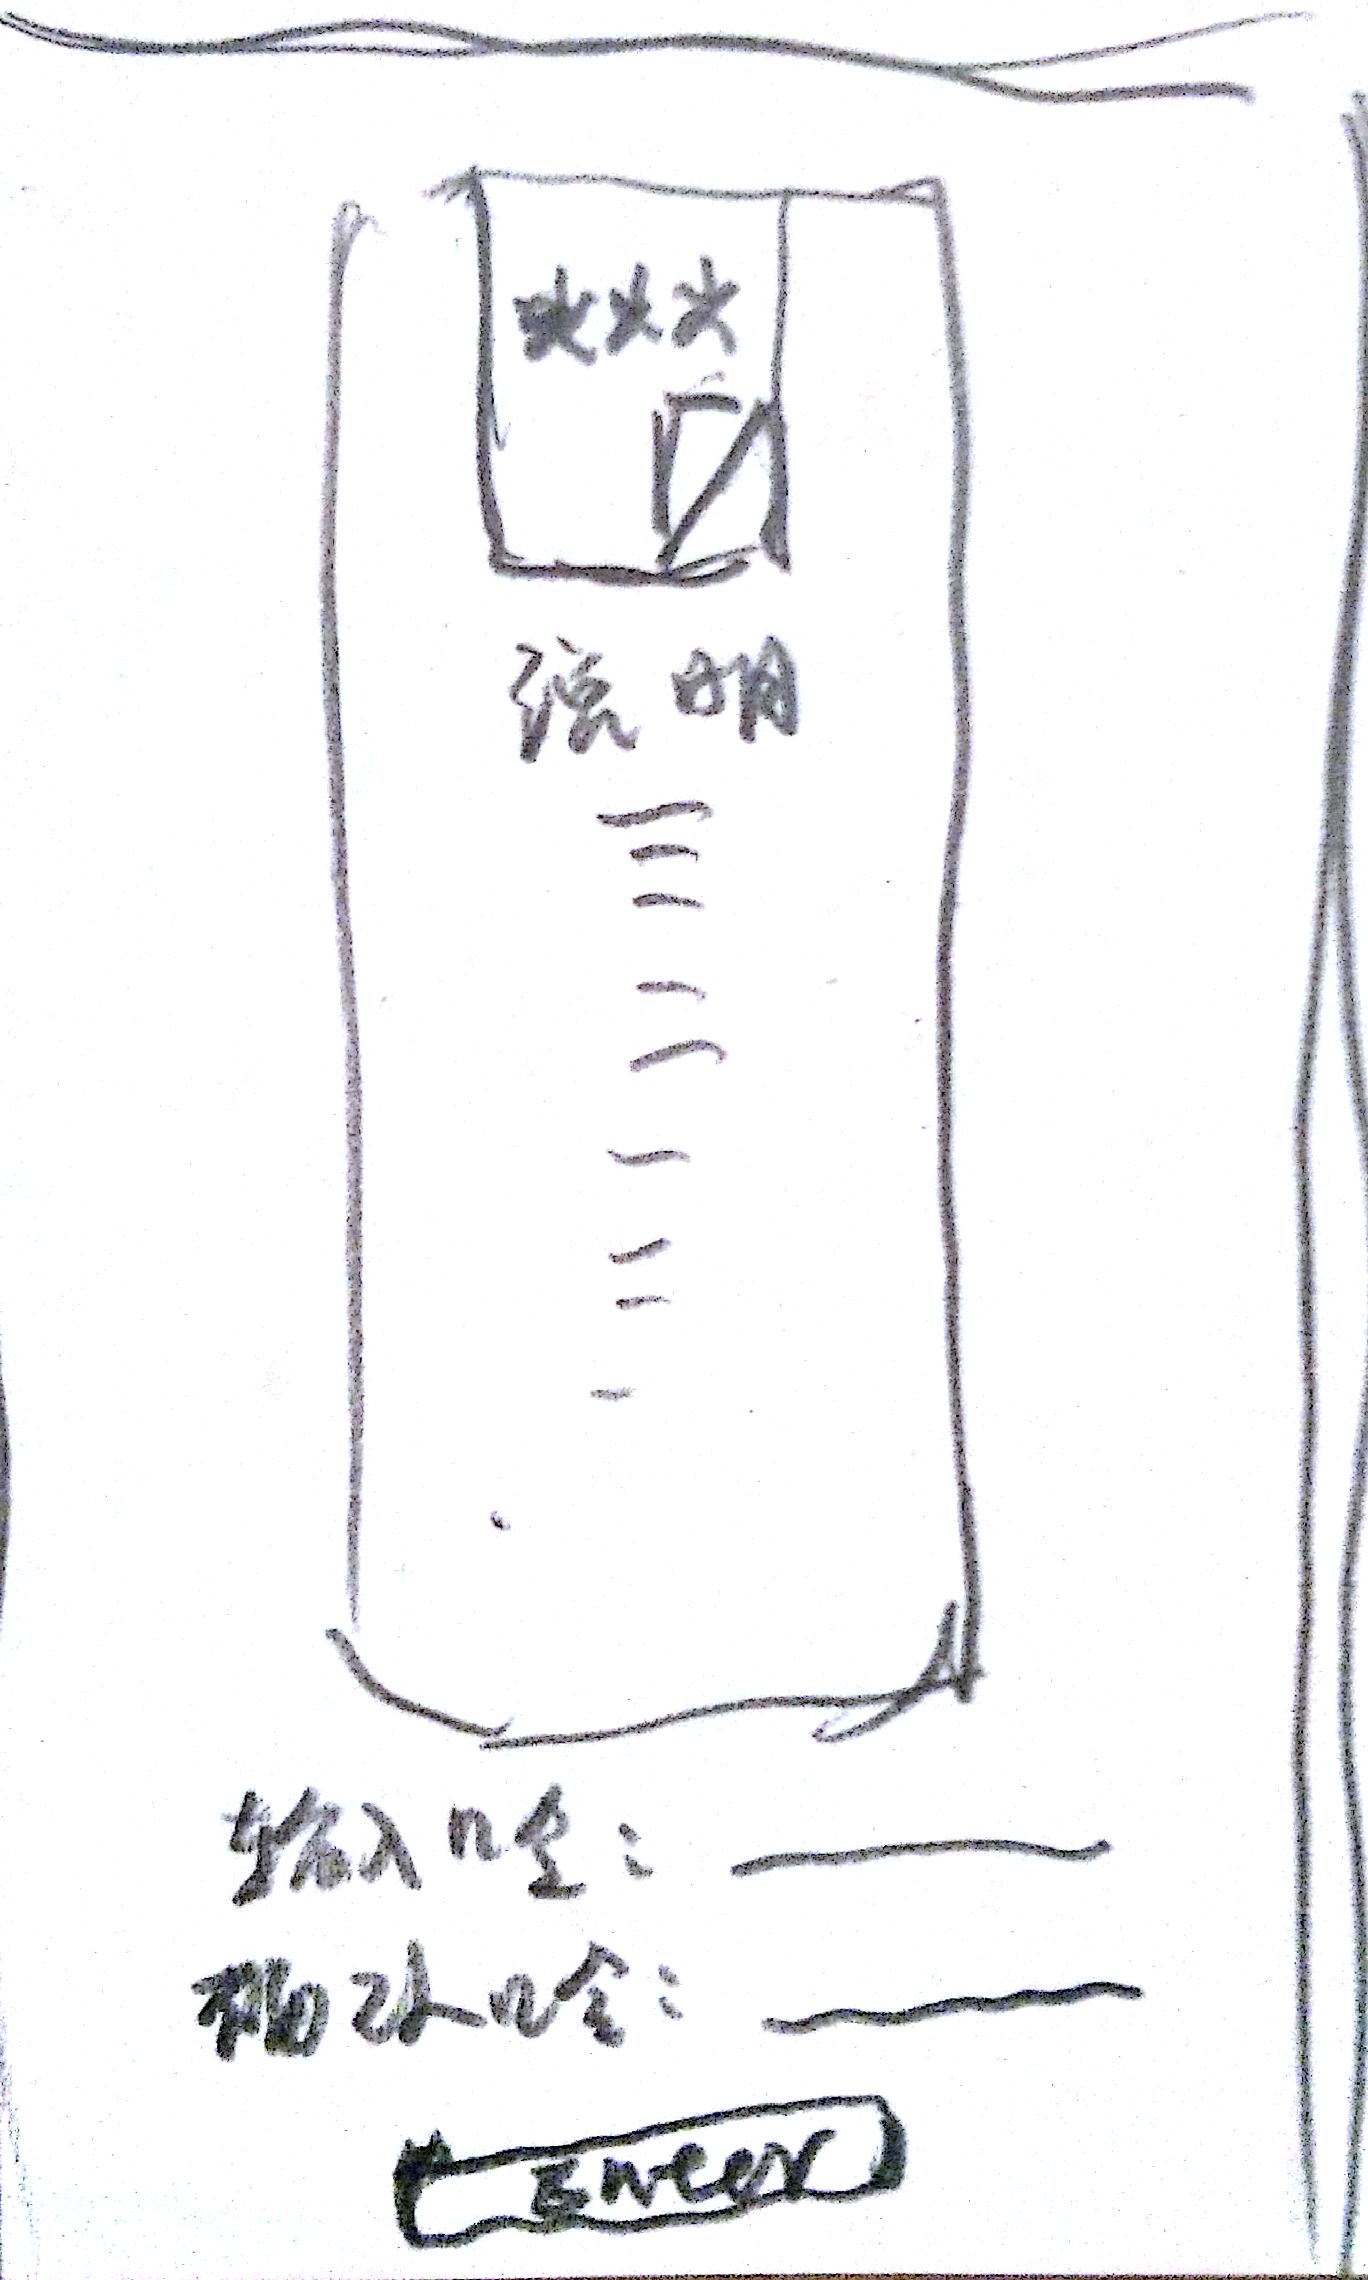 说明
输入口令：
确认口令：
Enter